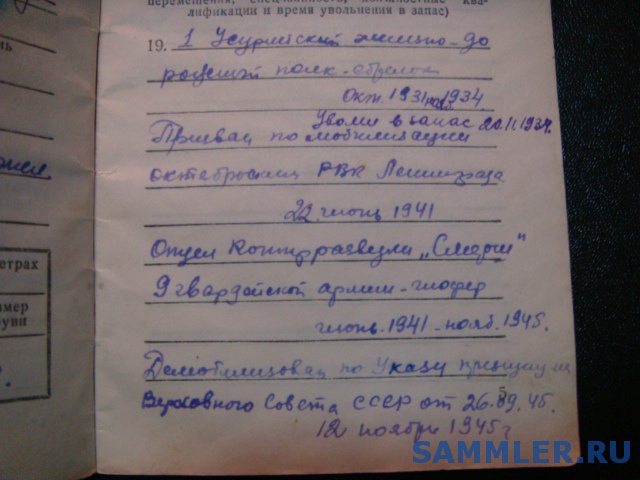 перемещения, специальность, должностные ква-
лификации и время увольнения в запас)
19. 1 Усурийский железно-до
рожный полк-стрелок
Окт. 1931 нояб 1934
Уволен в запас 20.11.1934.
Призван по мобилизации
октябрьским РВК Ленинграда
22 июнь 1941
Отдел Контрразведки „Смерш"
9 гвардейской армии-шофер
июнь.1941-нояб.1945.
Демобилизован по Указу президиума
Верховного Совета СССР от 26.09.45.
12 ноября 1945г
етрах
мер
уви
SAMMLER.RU